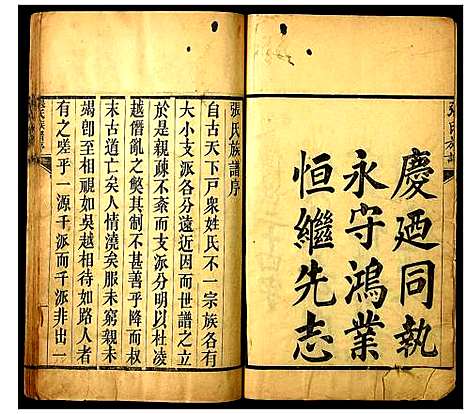 慶廼同執
永守鴻業
恒繼先志
張氏族譜
張氏族譜序
自古天下戸衆姓氏不一宗族各有
大小支派各分遠近因而世譜之立
於是親疎不紊而支派分明以杜凌
越僣亂之獘其制不甚善乎降而叔
末古道亡矣人情澆矣服未窮親未
竭卽至相視如吳越相待如路人者
有之嗟乎一源千派而千派非出一
張氏族譜序